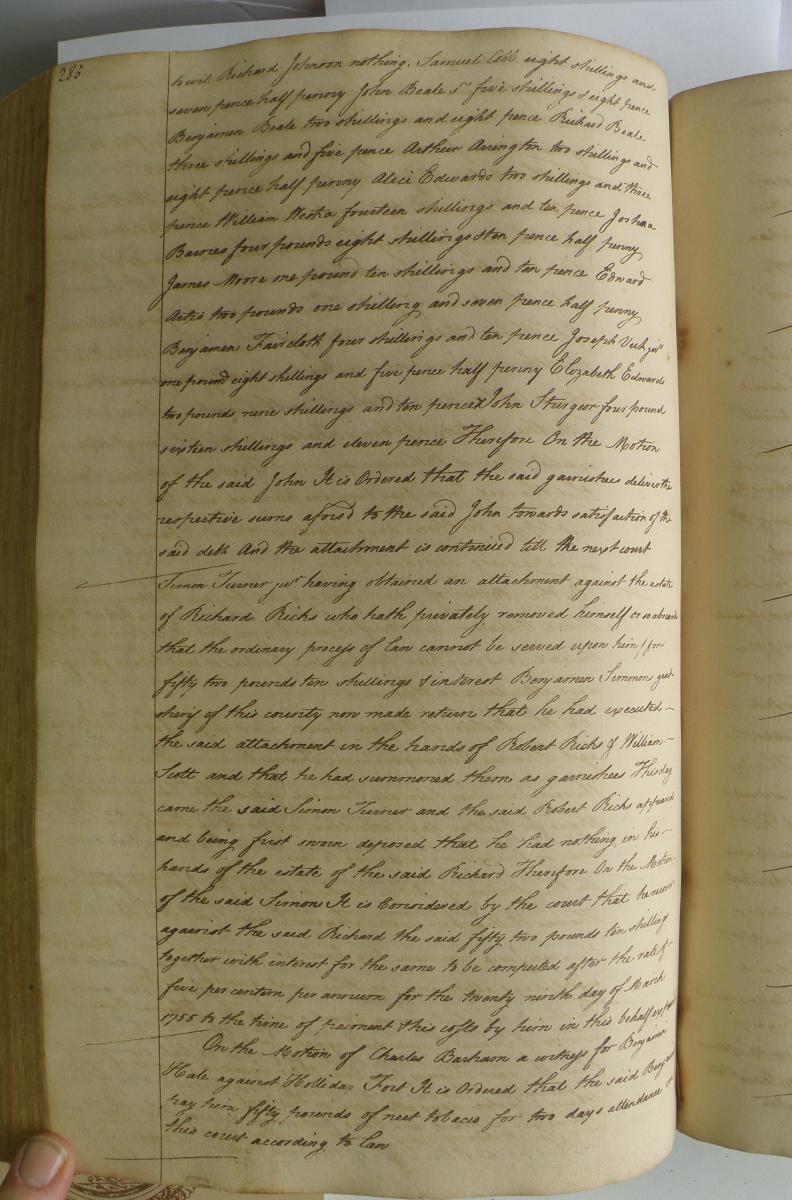 285
to wit Richard Johnson nothing. Samuel Cobb eight shillings and
seven pence half penny John Beale sr five shillings & eight pence
Benjamen Beale two shillings and eight pence Richard Beale
three shillings and five pence Arthur Arrington two shillings and
eight pence half penny Alice Edwards two shillings and three
pence William fourteen shillings and ten pence Joshua
Barnes four pounds eight shillings & ten pence half penny
James Moore one pound ten shillings and ten pence Edward
two pounds one shilling and seven pence half penny
Benjamen Faircloth four shillings and ten pence Joseph junr
one pound eight shillings and five pence half penny Elizabeth Edwards
two pounds nine shillings and ten pence & John Sturgeor four pound
sixteen shillings and eleven pence Therefore On the Motion
of the said John It is Ordered that the said garnishees deliver the
respective sums aforsd to the said John towards satisfaction of the
said debt And the attachment is continued till the next court
Simon Turner junr having obtained an attachment against the estate
of Richard Ricks who hath privately removed himself or so absconds
that the ordinary process of law cannot be served upon him / for
fifty two pounds ten shillings & interest Benjamen Simmons gent
sherif of this county now made return that he had executed
the said attachment in the hands of Robert Ricks & William
Scott and that he had summoned them as garnishees This day
came the said Simon Turner and the said Robert Ricks appeard
and being first sworn deposed that he had nothing in his
hands of the estate of the said Richard Therefore On the Motion
of the said Simon It is Considered by the court that he recover
against the said Richard the said fifty two pounds ten shillings
together with interest for the same to be computed after the rate of
five per centum per annum for the twenty ninth day of March
1755 to the time of paiment & his costs by him in this behalf expend
On the Motion of Charles Barham a witness for Benjamin
Hale against Holliday Fort It is Ordered that the said Benjamin
pay him fifty pounds of neet tobaco for two days attendance at
this court according to law